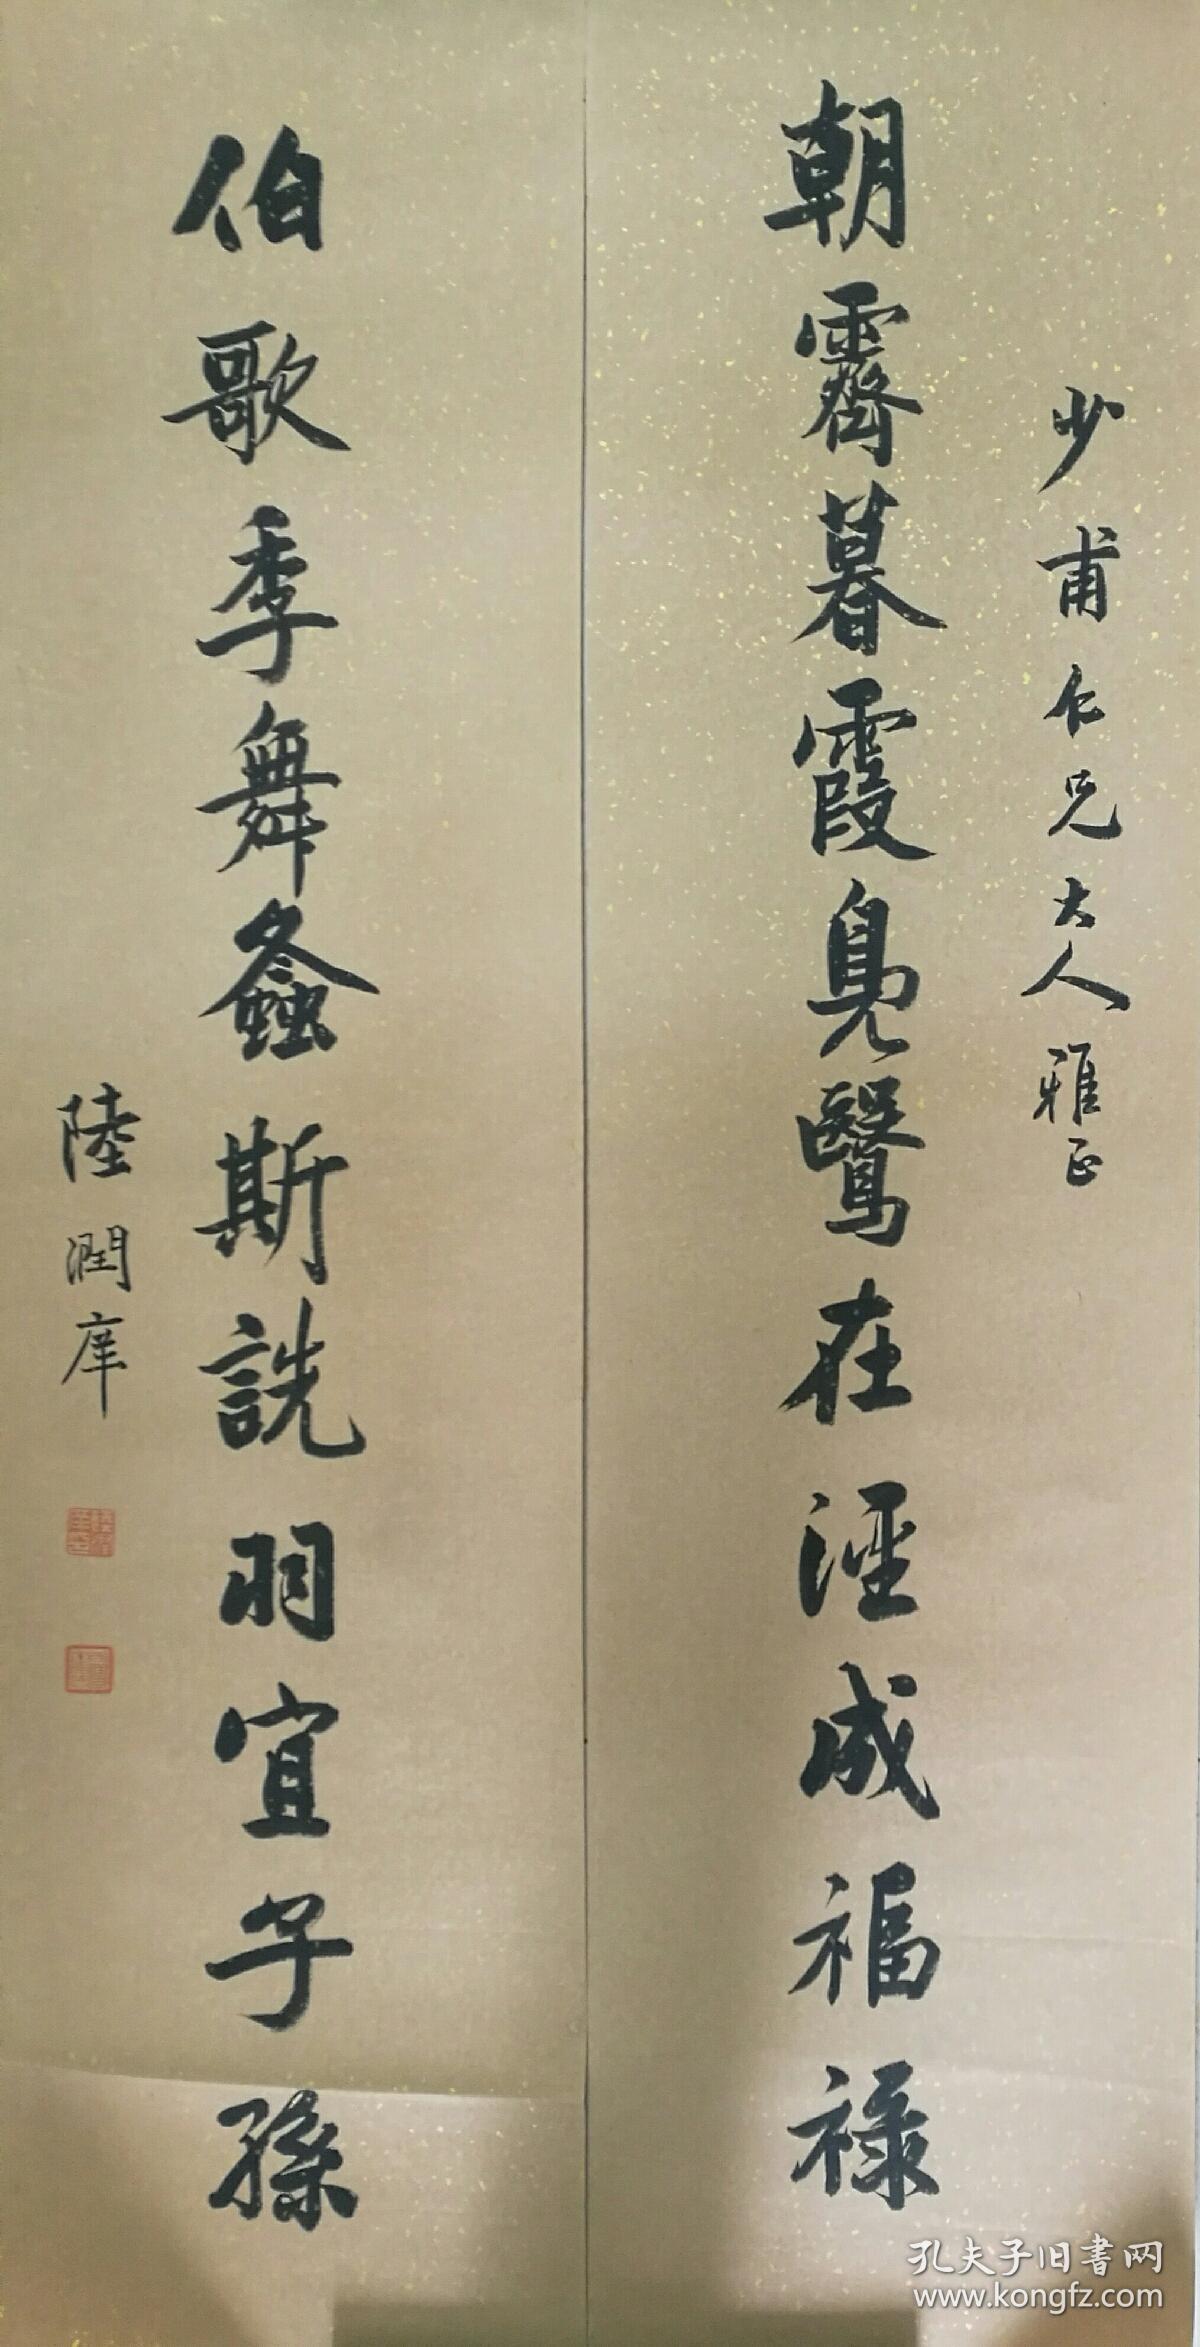 少甫仁兄大人雅正
朝霽暮霞鳧鷖在涇成福祿
伯歌季舞螽斯詵羽宜子孫
陸潤庠
孔夫子旧書网
www.kongfz.com